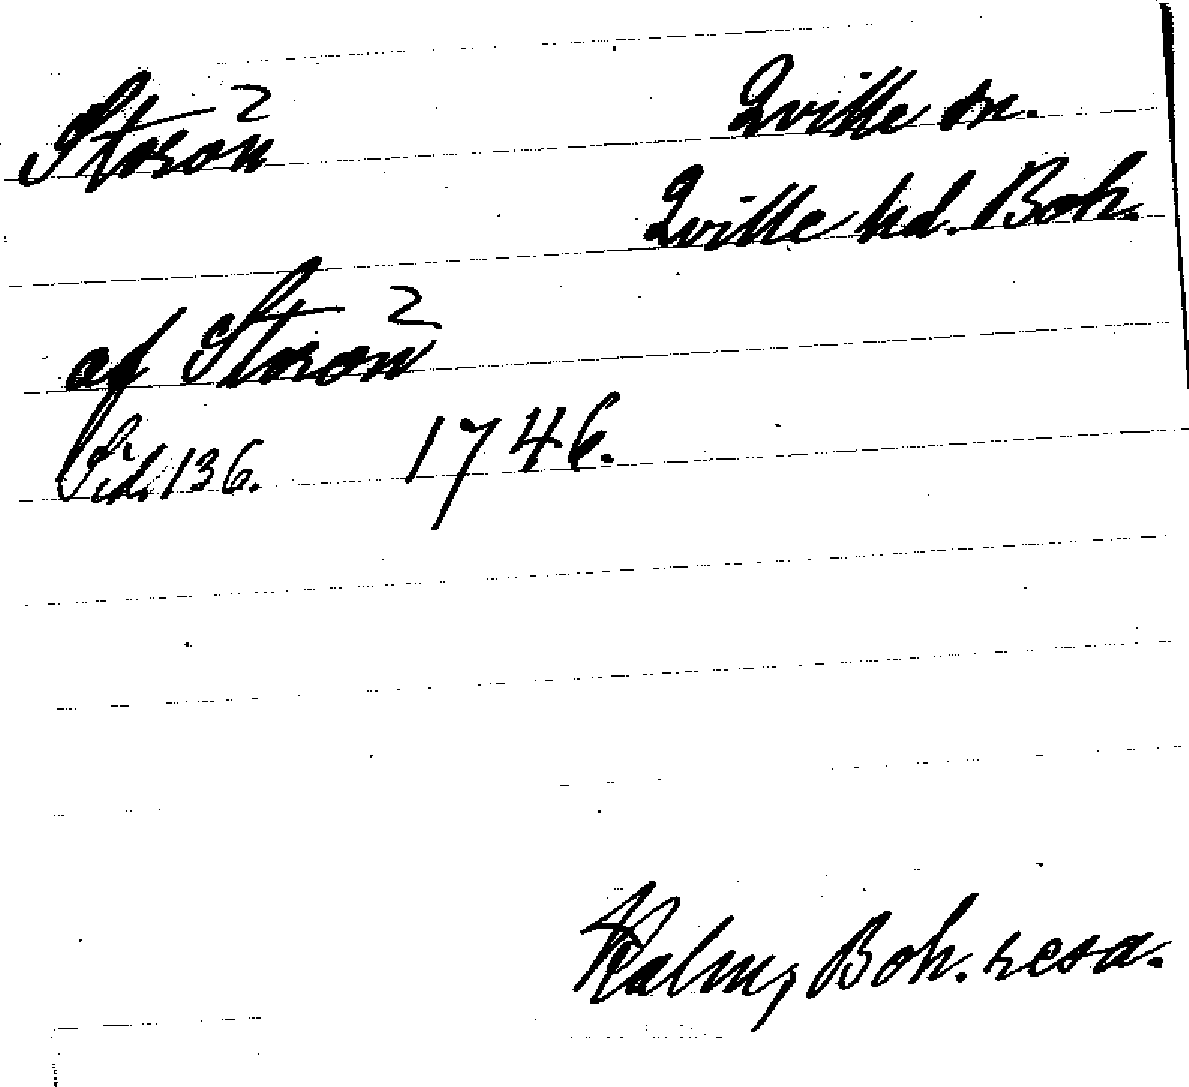 Storön Qville sn.
Qville hd. Boh.
af Storön
Sid. 136. 1746.
Kalm, Boh. resa.